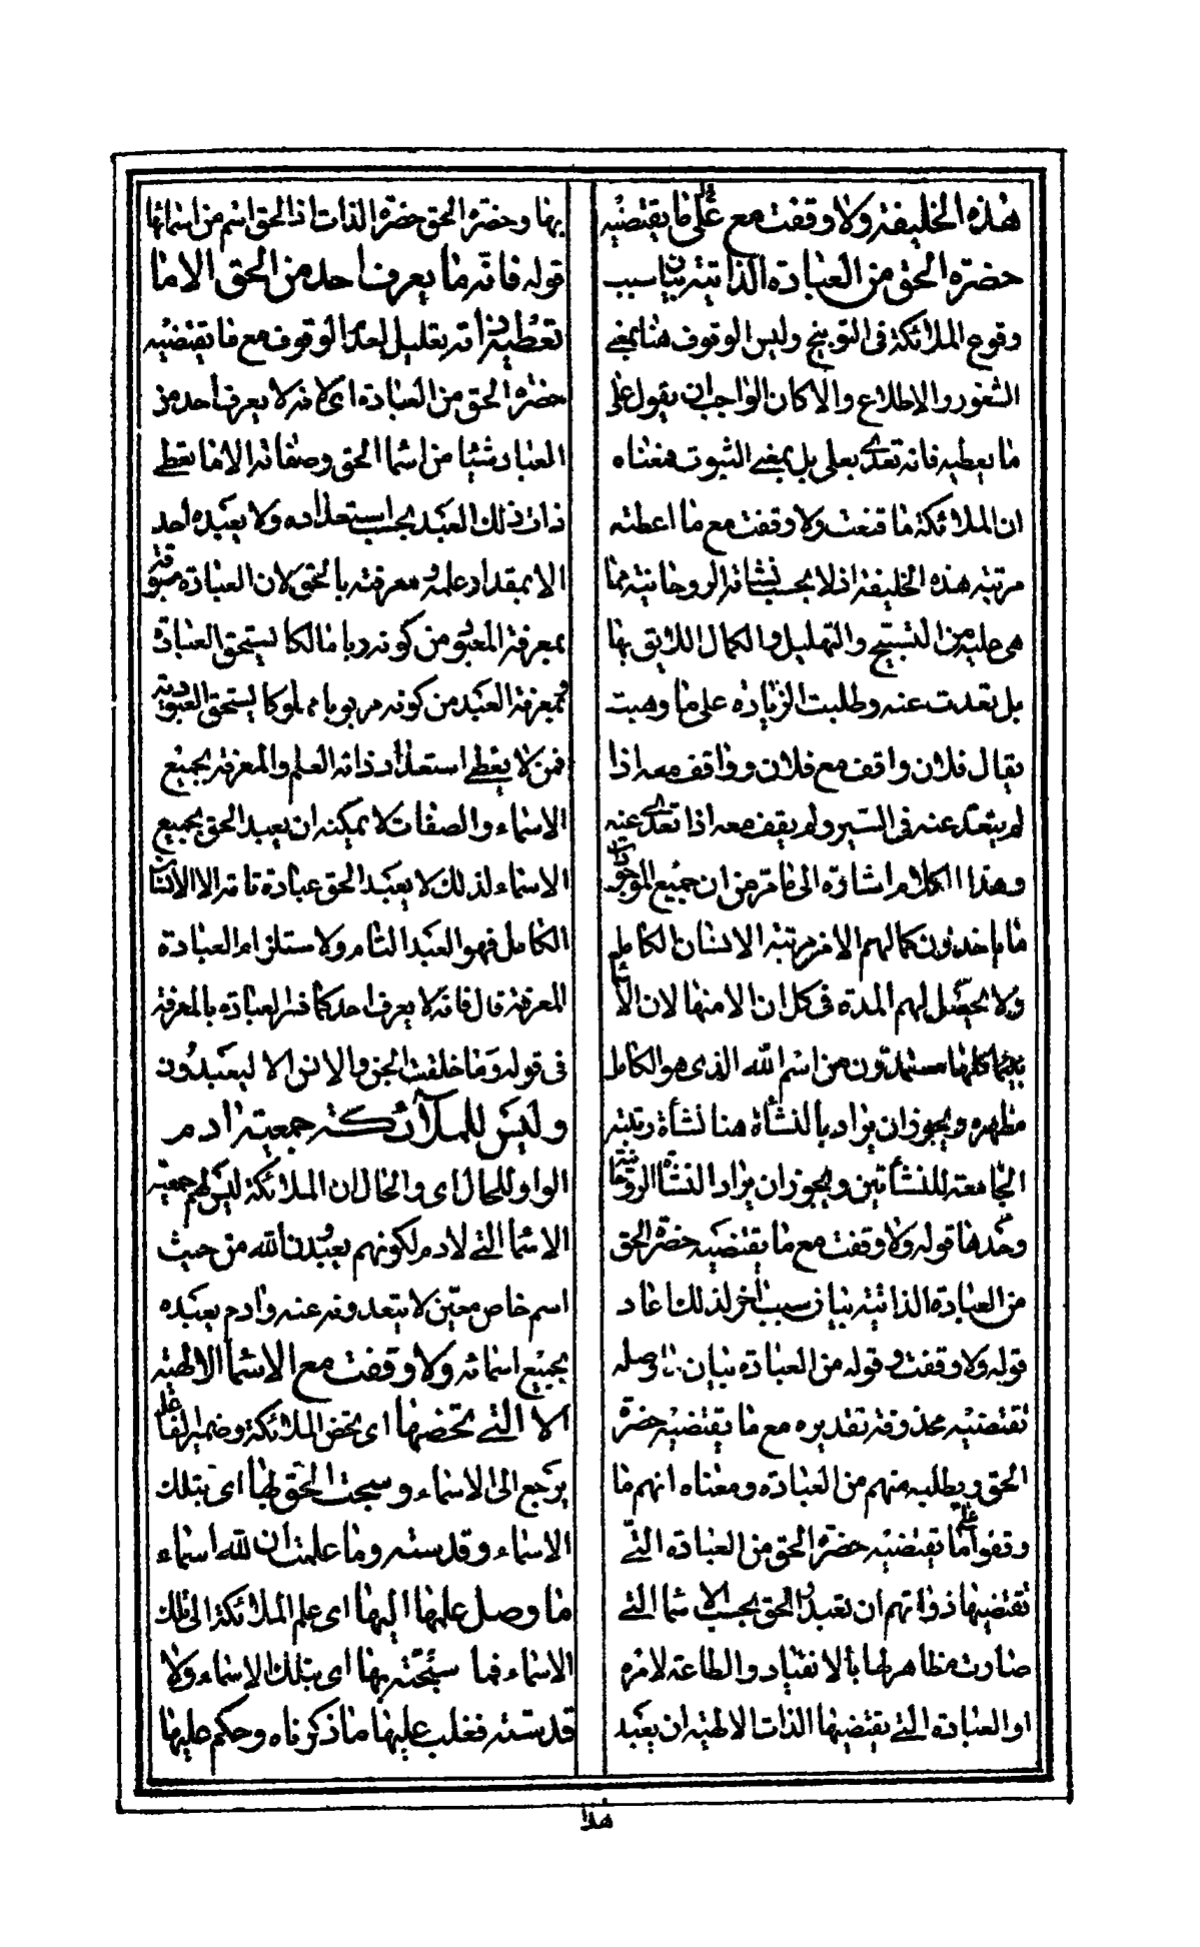 هذه الخليفة ولا وقفت مع على ما يقتضيه
حضرة الحق من العبادة الذاتية بيان سبب
وقوع الملائكة فى التوبيخ وليس الوقوف هنا بمعنى
الشعور والاطلاع والا كان الواجب ان يقول على
ما يعطيه فانه تعدى بعلى بل بمعنى الثبوت فمعناه
ان الملائكة ما قنعت ولا وقفت مع ما اعطته
مرتبة هذه الخليفة اذلا بحسب نشأته الروحانية مما
هى عليه من التسبيح والتهليل والكمال اللايق بها
بل تعدت عنه وطلبت الزيادة على ما وهبت
يقال فلان واقف مع فلان وواقف معه اذا
لم يتعد عنه فى السير ولم يقف معه اذا تعدى عنه
وهذا الكلام اشارة الى ما مر من ان جميع الموجودات
ما ياخذون كمالهم الا من مرتبة الانسان الكامل
ولا يحصل لهم المدد فى كل ان الا منها لان الاسماء
كلها مستمدون من اسم الله الذى هو الكامل
مظهره ويجوز ان يراد بالنشأة هنا نشأة رتبته
الجامعة للنشأتين ويجوز ان يراد النشأة الروحانية
وحدها قوله ولا وقفت مع ما يقتضيه حضرة الحق
من العبادة الذاتية بيان سبب اخر لذلك عاد
قوله ولا وقفت وقوله من العبادة بيان ما وصله
تقتضيه محذوفة تقديره مع ما يقتضيه حضرة
الحق ويطلبه منهم من العبادة ومعناه انهم ما
وقفوا على ما يقتضيه حضرة الحق من العبادة التى
تقتضيها ذواتهم ان تعبدوا الحق بحسب الاسما التى
صارت مظاهر لها بالانقياد والطاعة لامره
او العبادة التى يقتضيها الذات الالهية ان يعبد
بها وحضرة الحق حضرة الذات اذ الحق اسم من اسمائها
قوله فانه ما يعرف احد من الحق الا ما
تعطيه ذاته تعليل لعدم الوقوف مع ما تقتضيه
حضرة الحق من العبادة اى لانه لا يعرف احد من
العباد شيئا من اسما الحق وصفاته الا ما تعطى
ذات ذلك العبد بحسب استعداده ولا يعبده احد
الا بمقدار علمه ومعرفته بالحق لان العبادة مسبوقة
بمعرفة المعبود من كونه ربا مالكا يستحق العبادة
وبمعرفة العبد من كونه مربوبا مملوكا يستحق العبودية
فمن لا يعطى استعداد ذاته العلم والمعرفة بجميع
الاسماء والصفات لا يمكنه ان يعبد الحق بجميع
الاسماء لذلك لا يعبد الحق عبادة تامة الا الانسان
الكامل فهو العبد التام ولاستلزام العبادة
المعرفة قال فانه لا يعرف احد كما فسر العبادة بالمعرفة
فى قوله وما خلقت الجن والانس الا ليعبدون
وليس للملائكة جمعية ادم
الواو للحال اى والحال ان الملائكة ليس لهم جمعية
الاسما التى لادم لكونهم يعبدون الله من حيث
اسم خاص معين لا يتعدونه عنه وادم يعبده
بجميع اسمائه ولا وقفت مع الاسما الالهية
الا التى تخصها اى تخص الملائكة وضمير الفاعل
يرجع الى الاسماء وسبحت الحق بها اى بتلك
الاسماء وقدسته وما علمت ان لله اسماء
ما وصل علمها اليها اى علم الملائكة الى تلك
الاسماء فما سبحته بها اى بتلك الاسماء ولا
قدسته فغلب عليها ما ذكرناه وحكم عليها
هذا